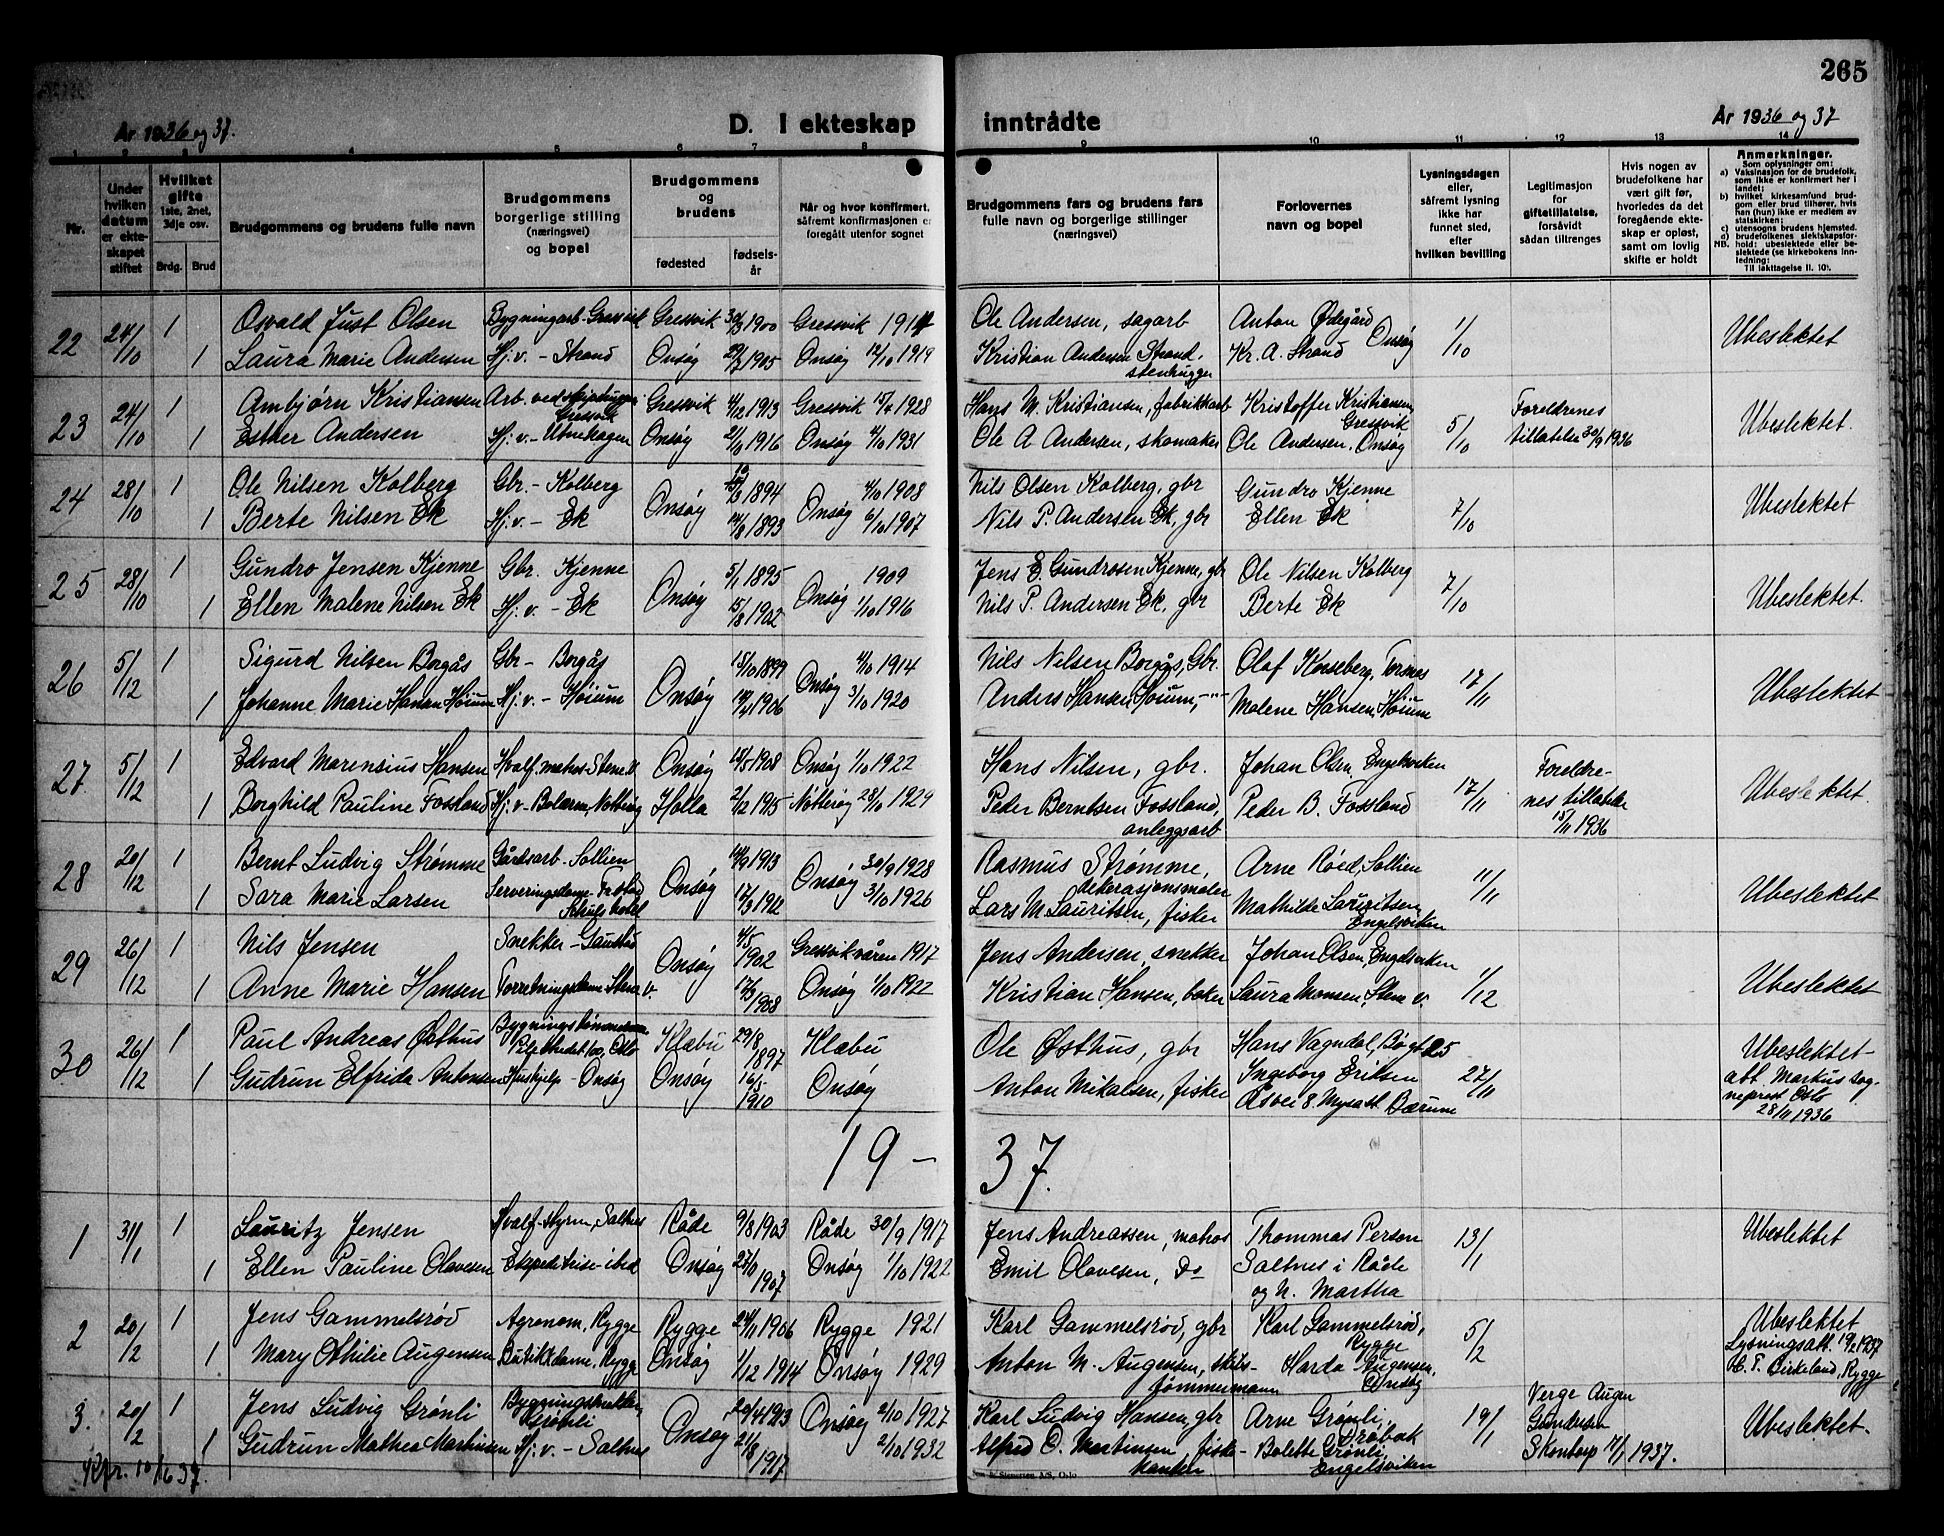 265
År 1936 og 37.
D. I ekteskap inntrådte
År 1936 og 37
1 2 3 4 5 6 7 8 9 10 11 12 13 14
Nr.
Under hvilken datum er ekteskapet stiftet
Hvilket gifte 1ste, 2net, 3dje osv.
Brdg. Brud
Brudgommens og brudens fulle navn
Brudgommens borgerlige stilling (næringsvei) og bopel
Brudgommens og brudens
fødested
fødselsår
Når og hvor konfirmert, såfremt konfirmasjonen er foregått utenfor sognet
Brudgommens fars og brudens fars fulle navn og borgerlige stillinger (næringsvei)
Forlovernes navn og bopel
Lysningsdagen eller, såfremt lysning ikke har funnet sted, efter hvilken bevilling
Legitimasjon for giftetillatelse, forsåvidt sådan tiltrenges
Hvis nogen av brudefolkene har vært gift før, hvorledes da det foregående ekteskap er opløst, samt om lovlig skifte er holdt
Anmerkninger.
Som oplysninger om:
a) Vaksinasjon for de brudefolk, som ikke er konfirmert her i landet;
b) hvilket kirkesamfund brudgom eller brud tilhører, hvis han (hun) ikke er medlem av statskirken;
c) utensogns brudens hjemsted.
d) brudefolkenes slektskapsforhold: ubeslektede eller beslektede (se kirkebokens innledning:
NB. Til iakttagelse II. 10).
22 24/10 1 Osvald Just Olsen Bygningarb. Gressvik Gressvik 1900 Gressvik 1914 Ole Andersen, sagarb Anton Ødegård Onsøy 1/10 Ubeslektet
1 Laura Marie Andersen Hj.v. - Strand Onsøy 1905 Onsøy 12/10 1919 Kristian Andersen Strand, stenhugger Kr. A. Strand
23 24/10 1 Ambjørn Kristiansen Arb. ved Gressvik Gressvik 4/12 1913 Gressvik 15/4 1928 Hans M. Kristiansen, fabrikkarb Kristoffer Kristiansen, Gressvik 5/10 Foreldrenes tillatelse 30/9 1936 Ubeslektet.
1 Esther Andersen Hj.v. - Onsøy 1916 Onsøy 4/10 1931 Ole A Andersen, skomaker Ole Andersen, Onsøy
24 28/10 1 Ole Nilsen Kolberg Gbr. - Kolberg Onsøy 1894 Onsøy 4/10 1908 Nils Olsen Kolberg, gbr Gundro Kjenne 7/10 Ubeslektet
1 Berte Nilsen Ek Hj.v. - Ek 14/8 1893 6/10 1907 Nils P. Andersen Ek, gbr Ellen Ek
25 28/10 1 Gundro Jensen Kjenne Gbr. Kjenne Onsøy 5/1 1895 Onsøy 1909 Jens E. Gundrosen Kjenne, gbr Ole Nilsen Kolberg 7/10 Ubeslektet.
1 Ellen Malene Nilsen Ek Hj.v. - Ek 15/8 1902 1/10 1916 Nils P. Andersen Ek, gbr Berte Ek
26 5/12 1 Sigurd Nilsen Borgås Gbr - Borgås Onsøy 15/10 1899 Onsøy 4/10 1914 Nils Nilsen Borgås, Gbr. Olaf Torsnes 17/11 Ubeslektet
1 Johanne Marie Hansen Høium Hj.v. - Høium 1906 3/10 1920 Anders Hansen Høium, -"- Malene Hansen, Høium
27. 5/12 1 Edvard Marensius Hansen Hvalf. matros - Stene v. Onsøy 15/5 1908 Onsøy 1/10 1922 Hans Nilsen, gbr. Johan Olsen, Engelsviken 17/11 Foreldrenes tillatelse 18/11 1936 Ubeslektet.
1 Borghild Pauline Fossland Hj.v - Bolærne, Nøtterøy Holla 2/12 1915 Nøtterøy 28/10 1929 Peder Berntsen Fossland, anleggsarb Peder B. Fossland
28 20/12 1 Bernt Ludvig Strømme Gårdsarb. - Sollien Onsøy 1913 Onsøy 30/9 1928 Rasmus Strømme, dekorasjonsmaler Arne Røed, Sollien 11/11 Ubeslektet
1 Sara Marie Larsen Serveringsdame 3/10 1926 Lars M. Lauritsen, fisker Mathilde Lauritsen, Engelsviken
29 26/12 1 Nils Jensen Snekker - Gaustad Onsøy 4/5 1902 Gressvik våren 1917 Jens Andersen, snekker Johan Olsen, Engelsviken 1/12 Ubeslektet
1 Anne Marie Hansen Forretningsdame Stene v. 17/3 1908 Onsøy 1/10 1922 Kristian Hansen, baker Laura Monsen, Stene v.
30 26/12 1 Paul Andreas Østhus Oslo Klæbu 29/8 1897 Klæbu Ole Østhus, gbr Hans Vagndal, Bøgt 25 27/11 Ubeslektet - att. Markus sogneprest Oslo 28/11 1936
1 Gudrun Elfrida Antonsen Hushjelp - Onsøy Onsøy 16/5 1910 Onsøy Anton Mikalsen, fisker Ingeborg Eriksen Bærum
19 - 37.
1 31/1 1 Lauritz Jensen Hvalf. Saltnes Råde 9/8 1903 Råde 30/9 1917 Jens Andreassen, matros Thommas Person 13/1 Ubeslektet
1 Ellen Pauline Olavesen Ekspeditrise - ibid Onsøy 1907 Onsøy 1/10 1922 Emil Olavesen, Do Saltnes i Råde og N. Martha
2 20/2 1 Jens Gammelsrød Agronom, Rygge Rygge 24/11 1906 Rygge 1921 Karl Gammelsrød, gbr Karl Gammelsrød, Rygge 5/2 Ubeslektet Lysningsatt. 19/2 1937 Birkeland, Rygge
1 Mary Othilie Augensen Butikkdame, Rygge Onsøy 1/12 1914 Onsøy 1929 Anton M. Augensen, skibstømmermann Harda Augensen,
3. 20/2 1 Jens Ludvig Grønli Bygningssnekker, Onsøy 20/4 1913 Onsøy 2/10 1927 Karl Ludvig Hansen, gbr Arne Grønli, Drøbak 19/1 Verge Ubeslektet.
1 Gudrun Mathea Martinsen Hj.v. - Saltnes 21/8 1917 2/10 1932 Alfred O. Martinsen Bolette Grønli, Engelsviken 1937.
10/6 37.